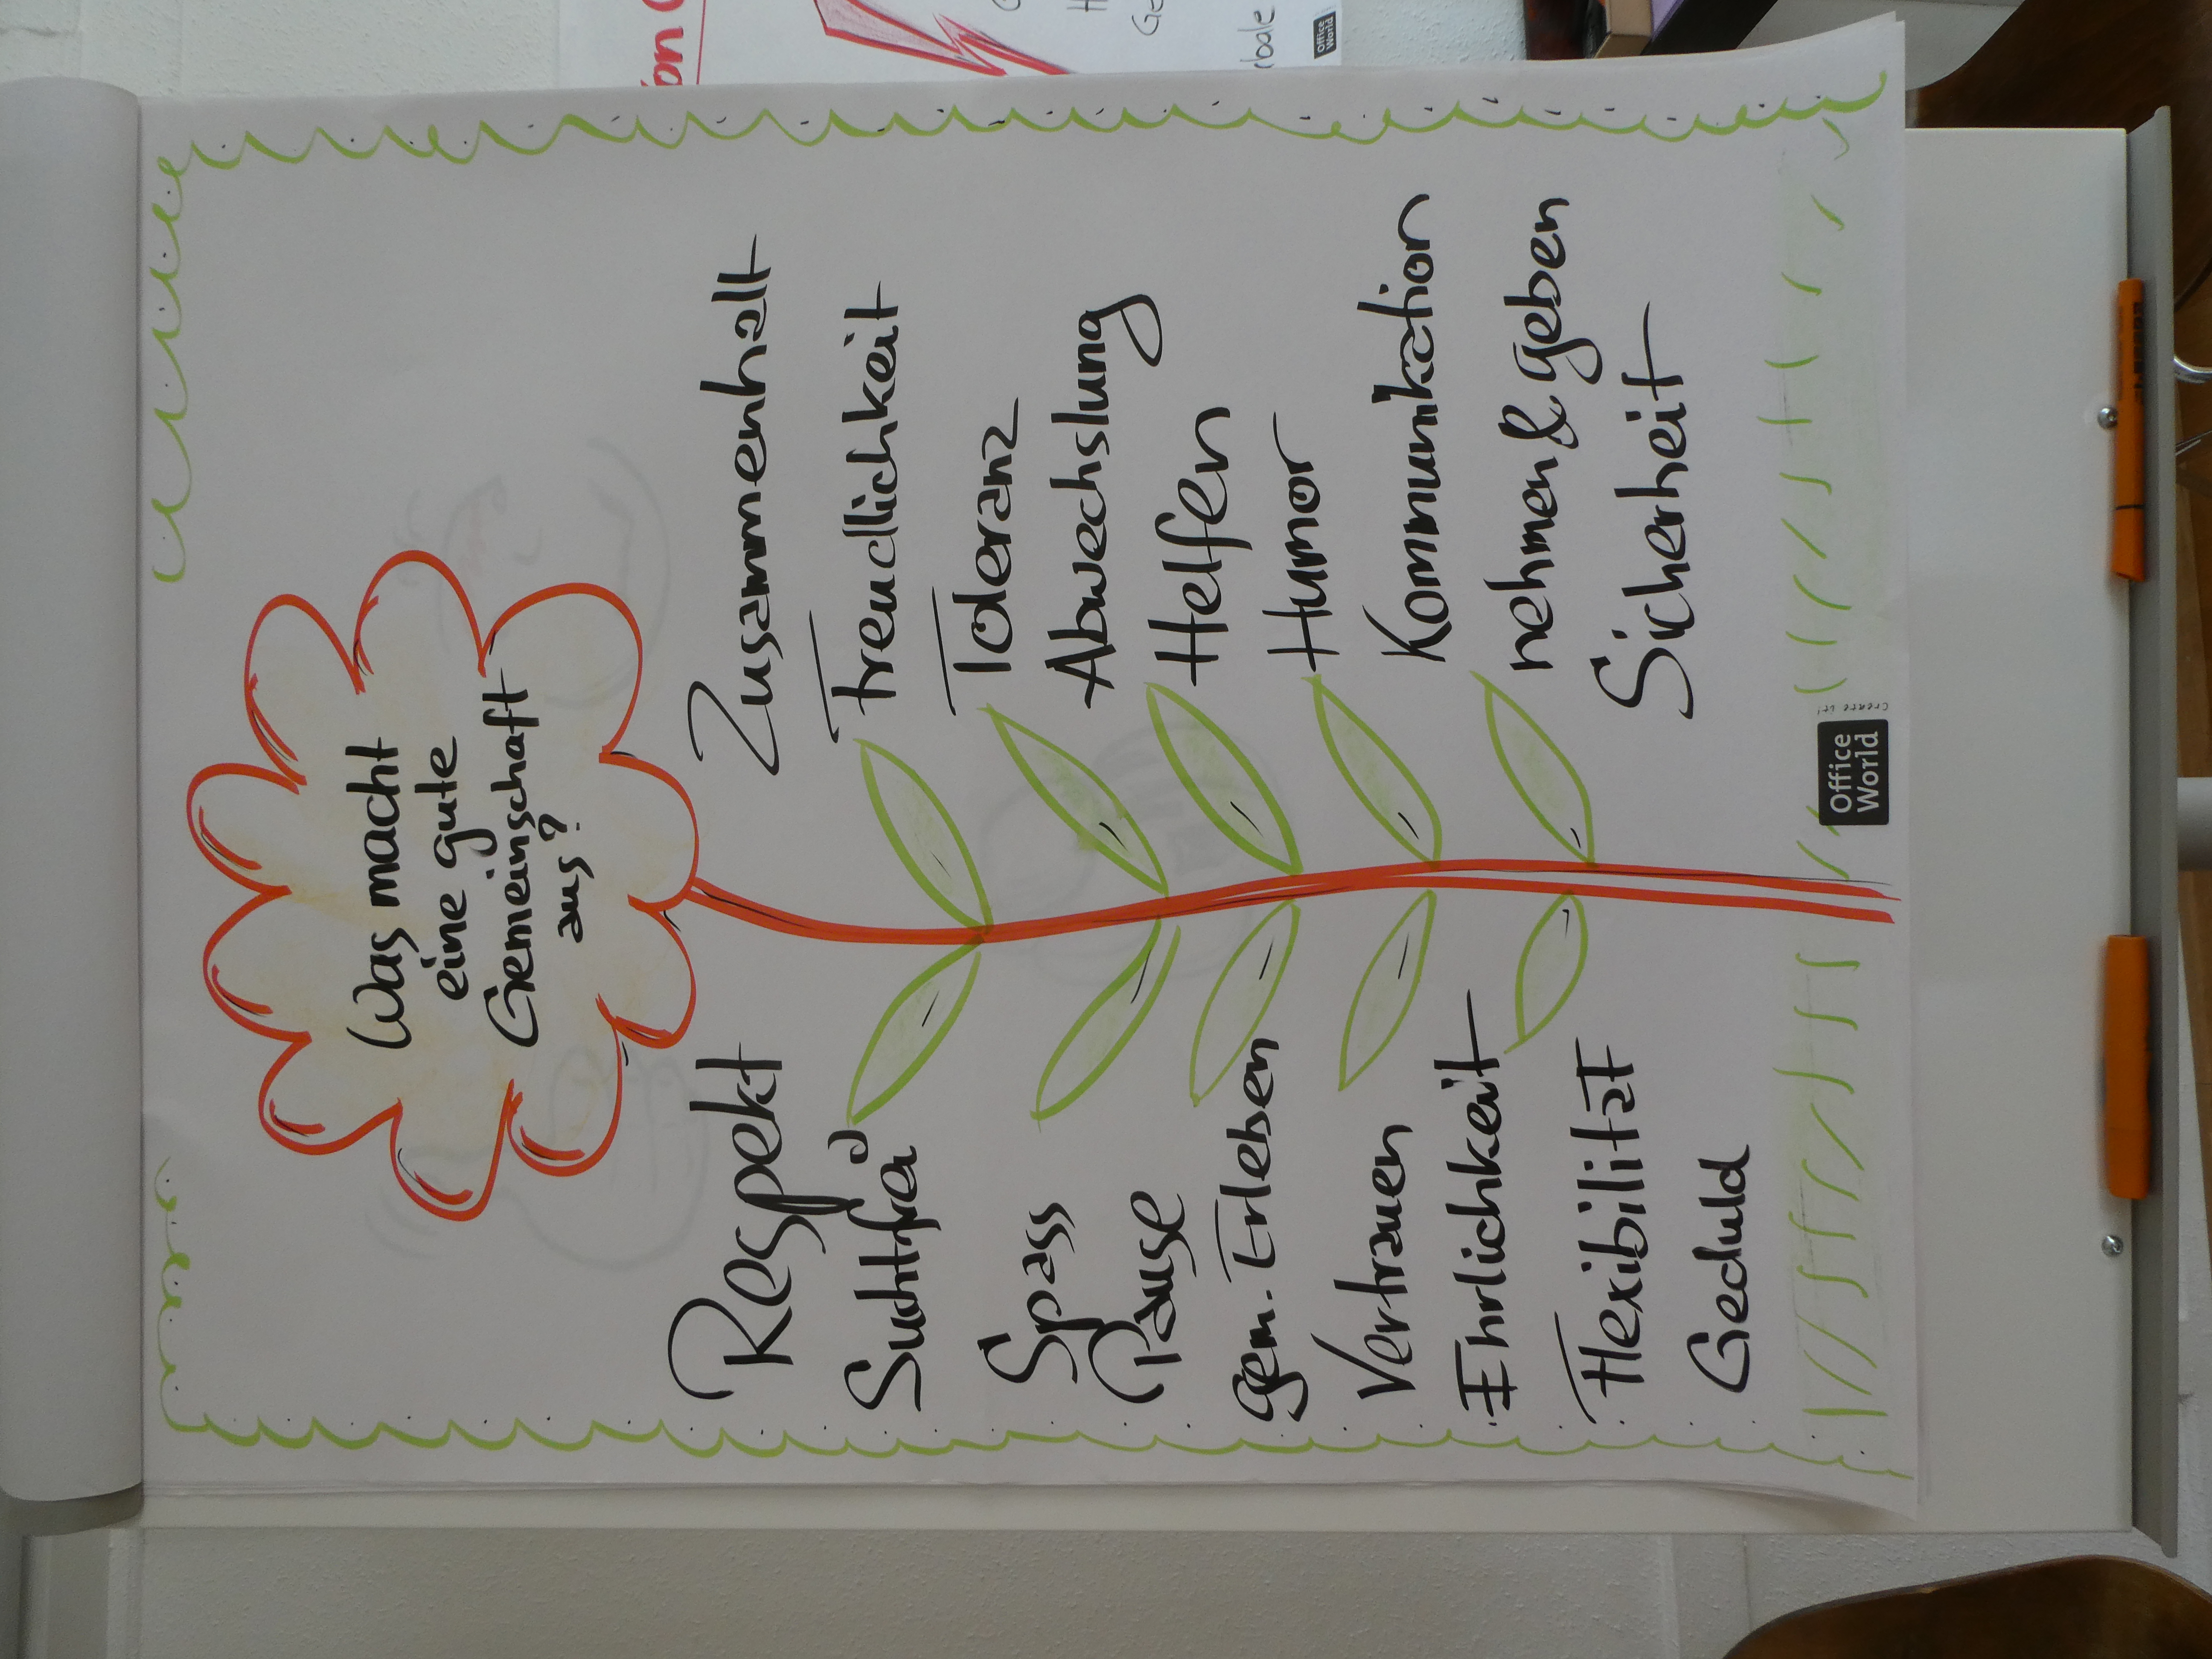 Was macht
eine gute
Gemeinschaft
aus?
Respekt
Suchtfrei
Spass
Pause
gem. Erleben
Vertrauen
Ehrlichkeit
Flexibilität
Geduld
Zusammenhalt
Freudlichkeit
Toleranz
Abwechslung
Helfen
Humor
Kommunikation
nehmen & geben
Sicherheit
Office
World
create it!
Office
World